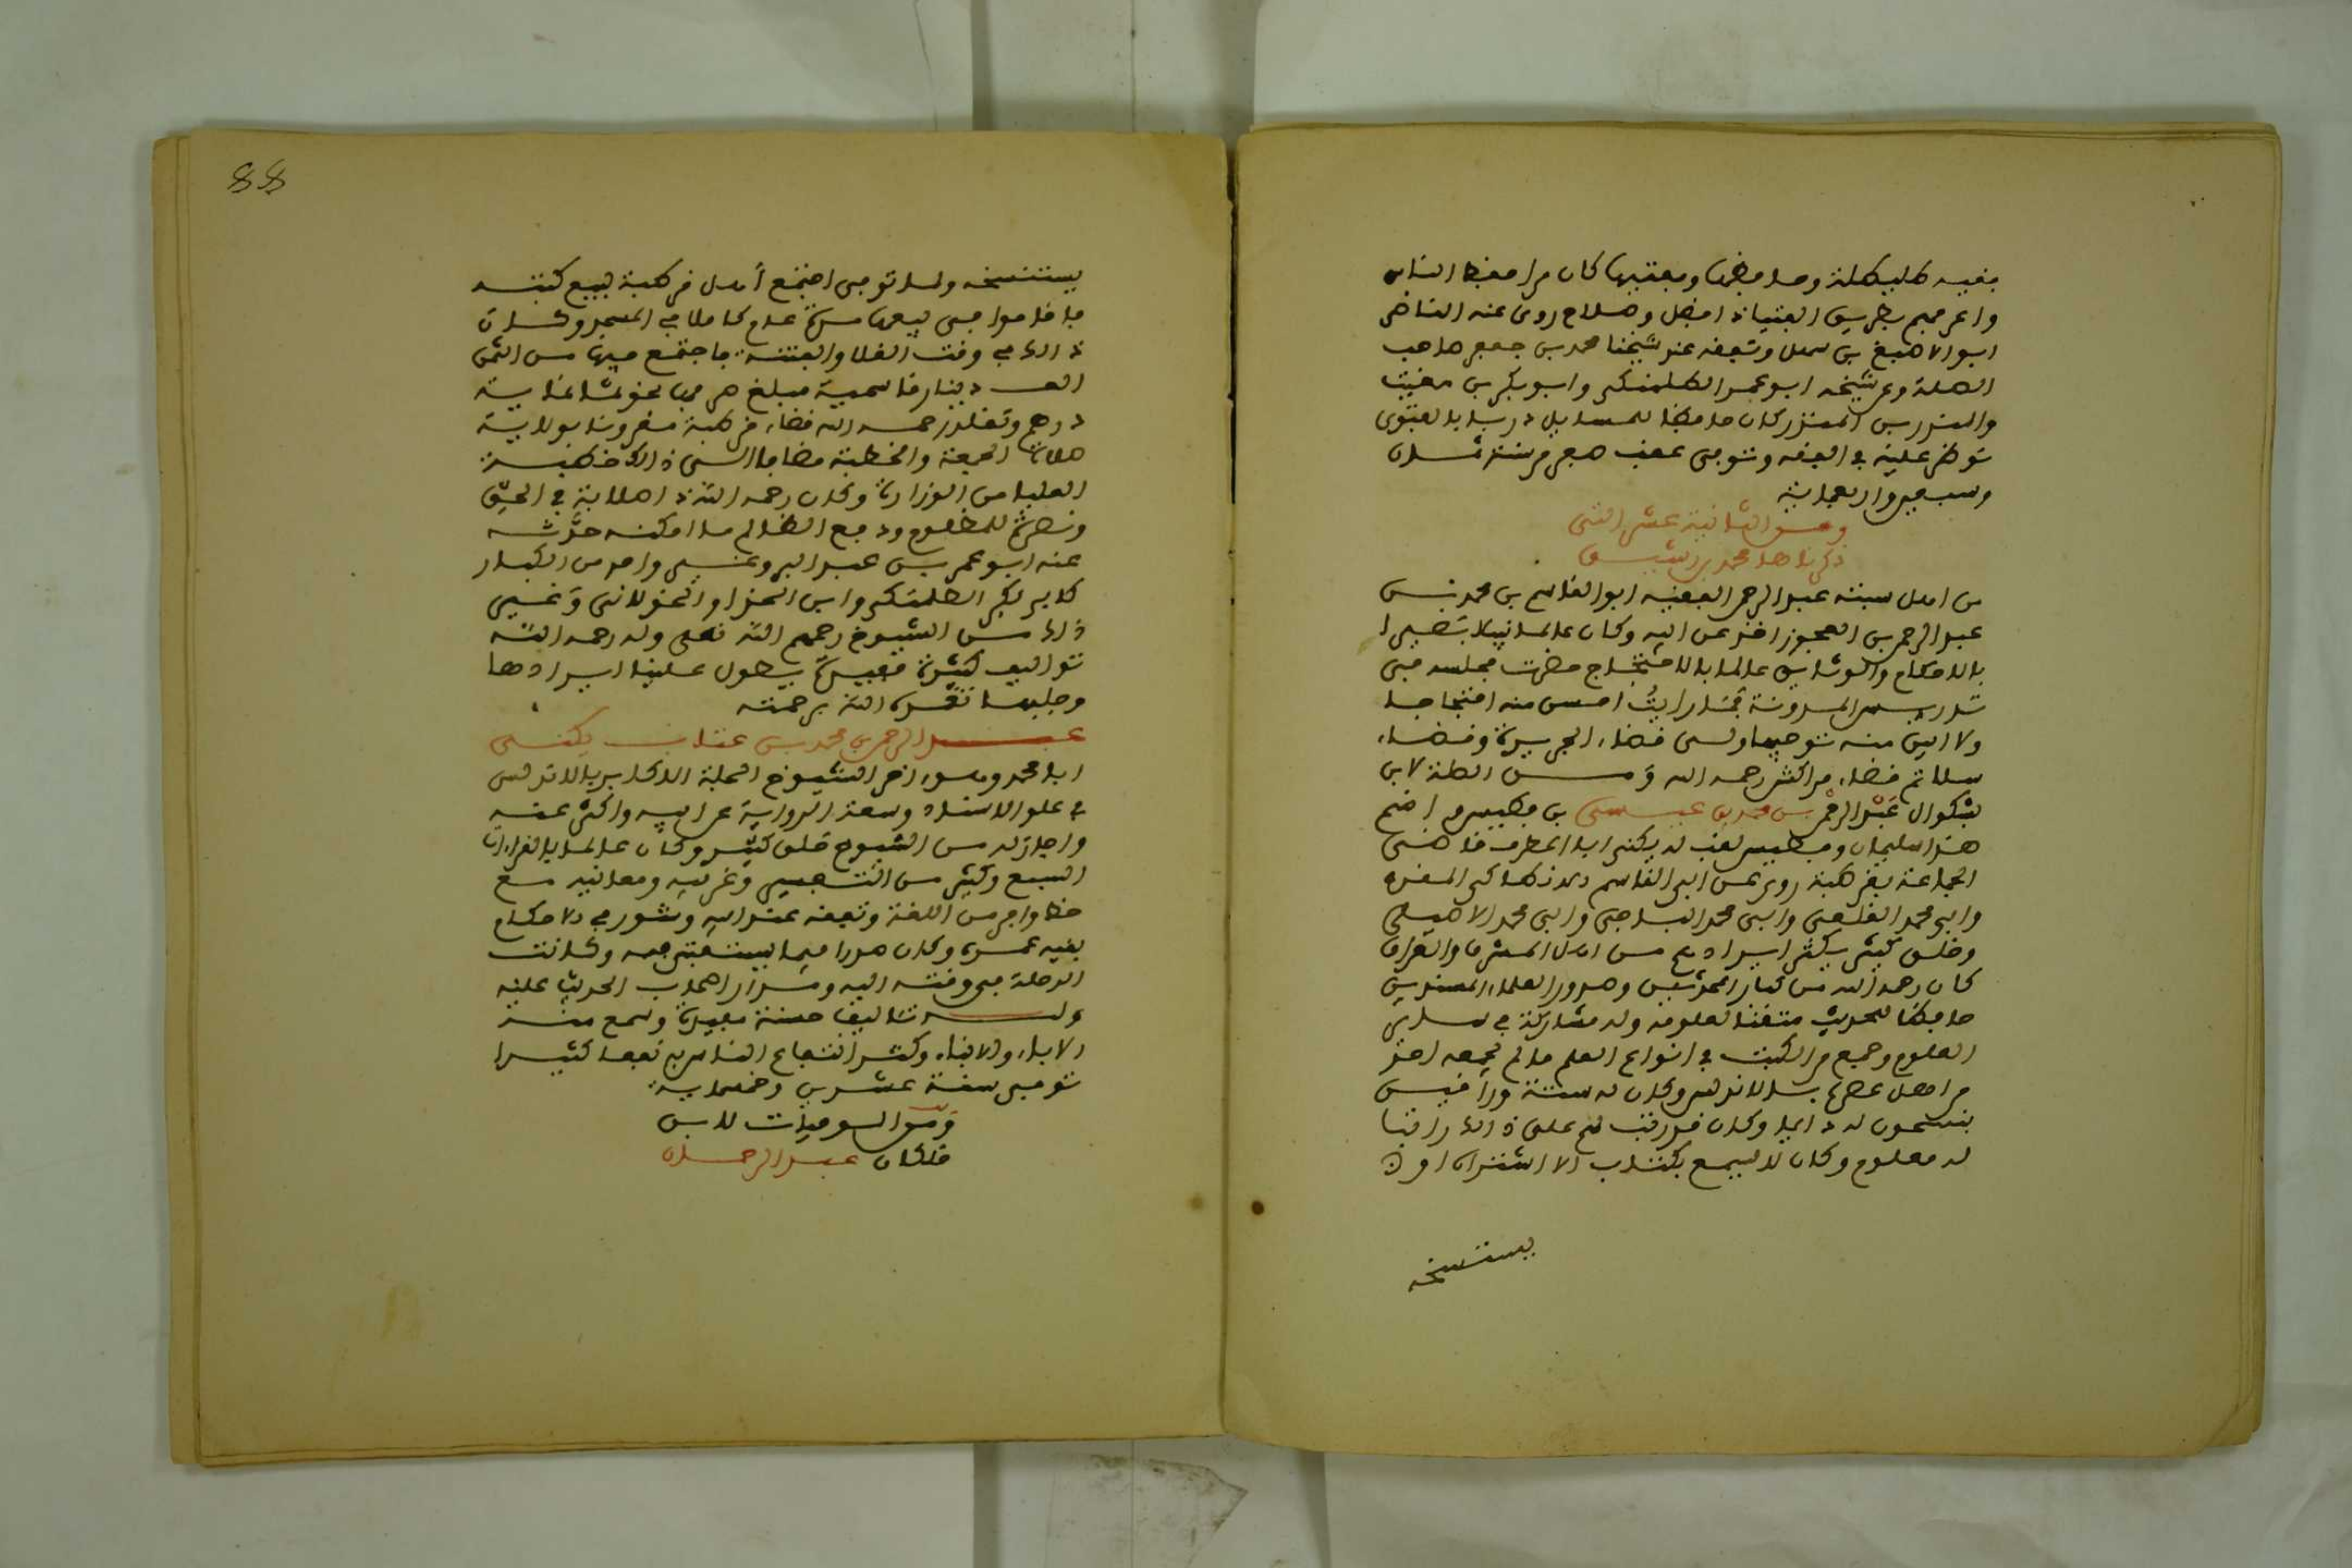 فقيه طليطلة وحافظها ومفتيها كان من احفظ الناس
واعرفهم بطريق الفتيا ذا فضل وصلاح روى عنه القاضي
ابو الاصبغ بن سهل وتفقه عند شيخنا محمد بن جعفر صاحب
الصلة وعن شيخه ابو عمر الطلمنكي وابو بكر بن مغيث
والمنذر بن المنذر كان حافظا للمسايل دربا بالفتوى
نوظر عليه في الفقه وتوفي عقب صفر من سنة ثمان
وسبعين واربعماية
ومن الثانية عشر التي
ذكرناها محمد بن رشيق
من اهل سبتة عبد الرحمن الفقيه ابو القاسم بن محمد بن
عبد الرحمن بن العجوز اخذ عن ابيه وكان عالما نبيلا بصيرا
بالاحكام والوثايق عالما بالاحتجاج حضرت مجلسه في
تدريس المدونة فما رايت احسن منه احتجاجا
ولا ابين منه توجيها ولي قضاء الجزيرة وقضاء
سلا ثم قضاء مراكش رحمه الله ومن الصلة لابن
بشكوال عبد الرحمن بن محمد بن عيسى بن فطيس واسم
هذا سليمان وفطيس لقب له يكنى ابا المطرف قاضي
الجماعة بقرطبة روى عن ابي القاسم
وابي محمد القلعي وابي محمد الباجي وابي محمد الاصيلي
وخلق كثير يكثر ايرادهم من اهل المشرق والعراق
كان رحمه الله من كبار المحدثين وصدور العلماء المسندين
حافظا للحديث متقنا لعلومه وله مشاركة في ساير
العلوم وجمع من الكتب في انواع العلم ما لم يجمعه احد
من اهل عصره بالاندلس وكان له ستة وراقين
ينسخون له دايما وكان قد رتب لهم على ذلك راتبا
له معلوم وكان لا يسمع بكتاب الا اشتراه او
يستنسخه
يستنسخه ولما توفي اجتمع أهل قرطبة لبيع كتبه
فاقاموا في بيعها مدة عام كاملا في المسجد وكان
ذلك في وقت الغلا والفتنة فاجتمع فيها من الثمن
الف دينار قاسمية مبلغ صرفها نحو ثمانماية
درهم وتقلد رحمه الله قضاء قرطبة مقرونا بولاية
صلاة الجمعة والخطبة مضافا الى ذلك خطته
العليا من الوزارة وكان رحمه الله ذا صلابة في الحق
ونصرة للمظلوم ودفع الظالم ما امكنه حدث
عنه ابو عمر بن عبد البر وغير واحد من الكبار
كابي بكر الطلمنكي وابن الحذا والخولاني وغير
ذلك من الشيوخ رحمهم الله تعلى وله رحمه الله
تواليف كثيرة مفيدة يطول علينا ايرادها
وجلبها تغمده الله برحمته
عبد الرحمن بن محمد بن عتاب يكنى
ابا محمد وهو اخر الشيوخ الجلة الاكابر بالاندلس
في علو الاسناد وسعة الرواية عن ابيه واكثر عنه
واجاز له من الشيوخ خلق كثير وكان عالما بالقراءات
السبع وكثير من التفسير وغريبه ومعانيه مع
حظ وافر من اللغة وتفقه عند ابيه وشور في الاحكام
بقية عمره وكان صدرا فيما يستفتى فيه وكانت
الرحلة في وقته اليه ومدار اصحاب الحديث عليه
وله تاليف حسنة مفيدة وسمع منه
الاباء والابناء وكثر انتفاع الناس به نفعا كثيرا
توفي سنة عشرين وخمسماية
ومن الوفيات لابن
خلكان عبد الرحمان